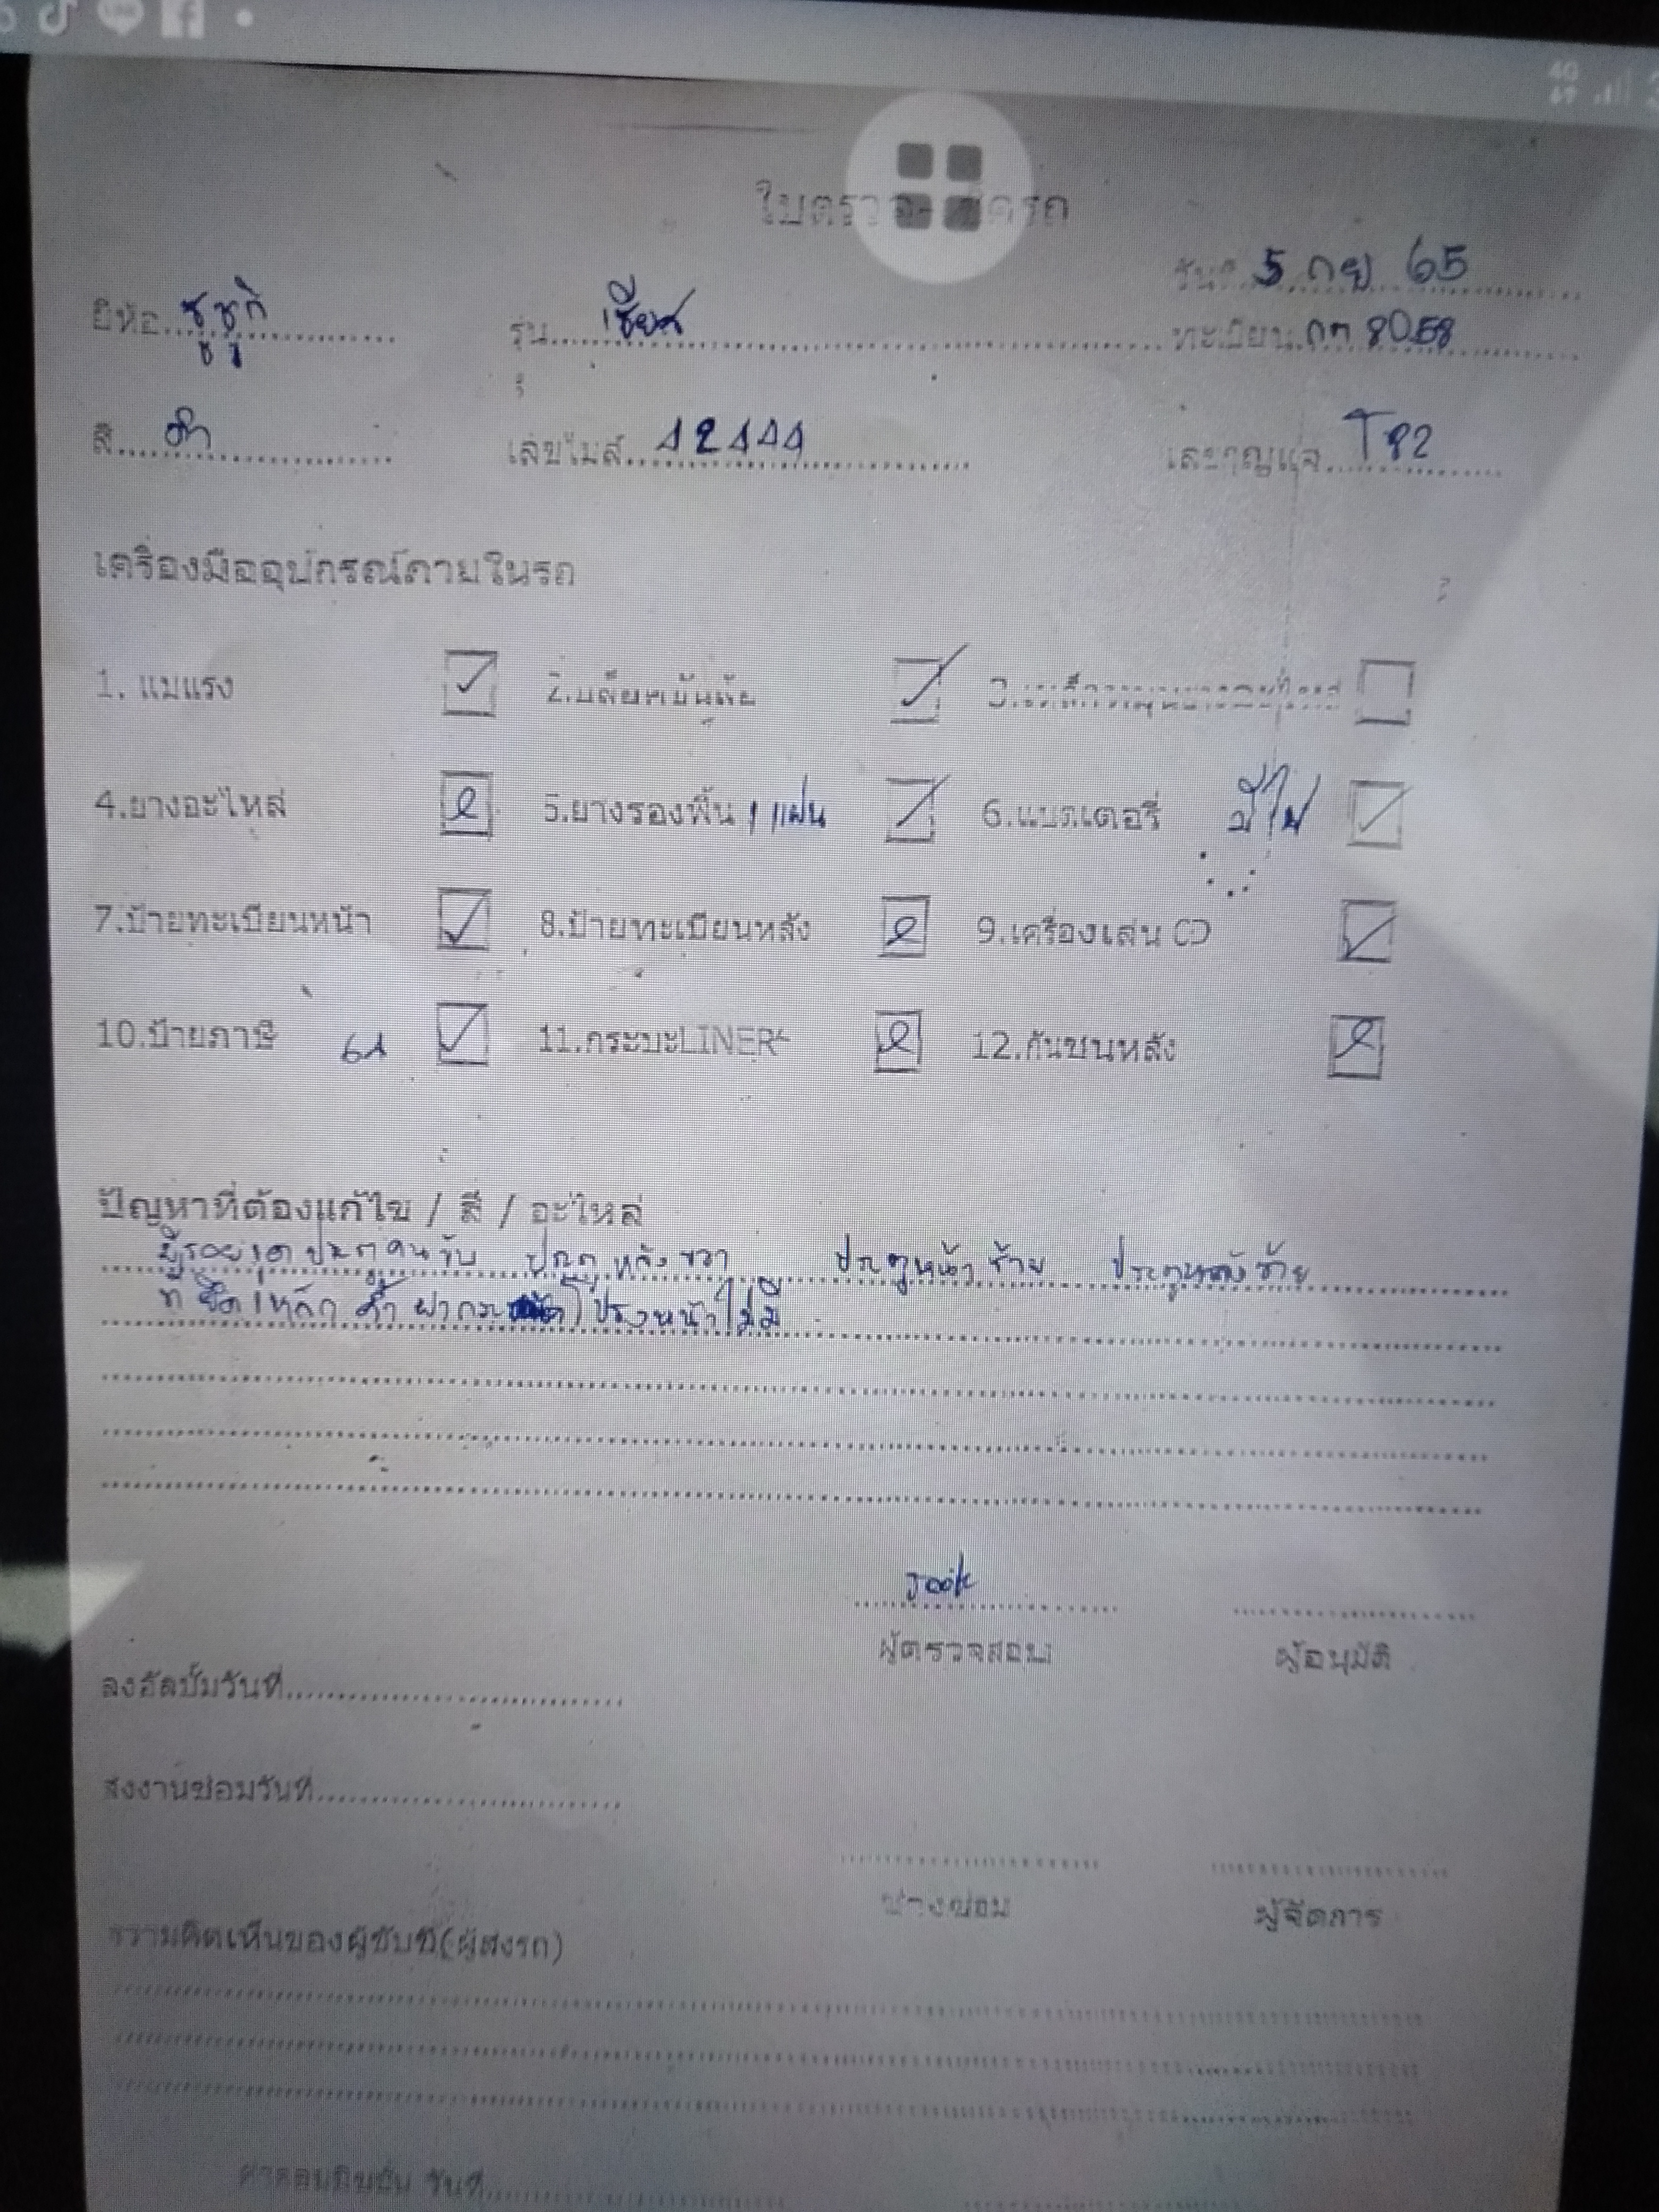 4G
วันที่ 5 กย 65
ยี่ห้อ ซูซูกิ รุ่น เซียส ทะเบียน กก 8058
สี ดำ เลขไมล์ 12111 เลขกุญแจ T82
เครื่องมืออุปกรณ์ภายในรถ
1. แม่แรง 2.บล็อคขันล้อ 3.
4.ยางอะไหล่ 5.ยางรองพื้น 1 แผ่น 6.แบตเตอรี่ มีไฟ
7.ป้ายทะเบียนหน้า 8.ป้ายทะเบียนหลัง 9.เครื่องเล่น CD
10.ป้ายภาษี 61 11.กระบะLINER 12.กันชนหลัง
ปัญหาที่ต้องแก้ไข / สี / อะไหล่
มีรอย ประตูคนขับ ประตูหลังขวา ประตูหน้าซ้าย ประตูหลังซ้าย
ที่ยึดเหล็กค้ำฝากระโปรงหน้าไม่มี
Jook
ผู้ตรวจสอบ ผู้อนุมัติ
ลงอัลบั้มวันที่
ส่งงานซ่อมวันที่
ช่างซ่อม ผู้จัดการ
ความคิดเห็นของผู้ขับขี่(ผู้ส่งรถ)
วันที่